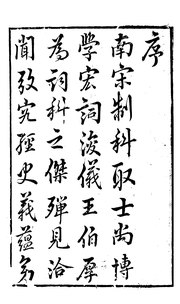 序
南宋制科取士尚博
學宏詞浚儀王伯厚
為詞科之傑殫見洽
聞攷究經史義蘊為